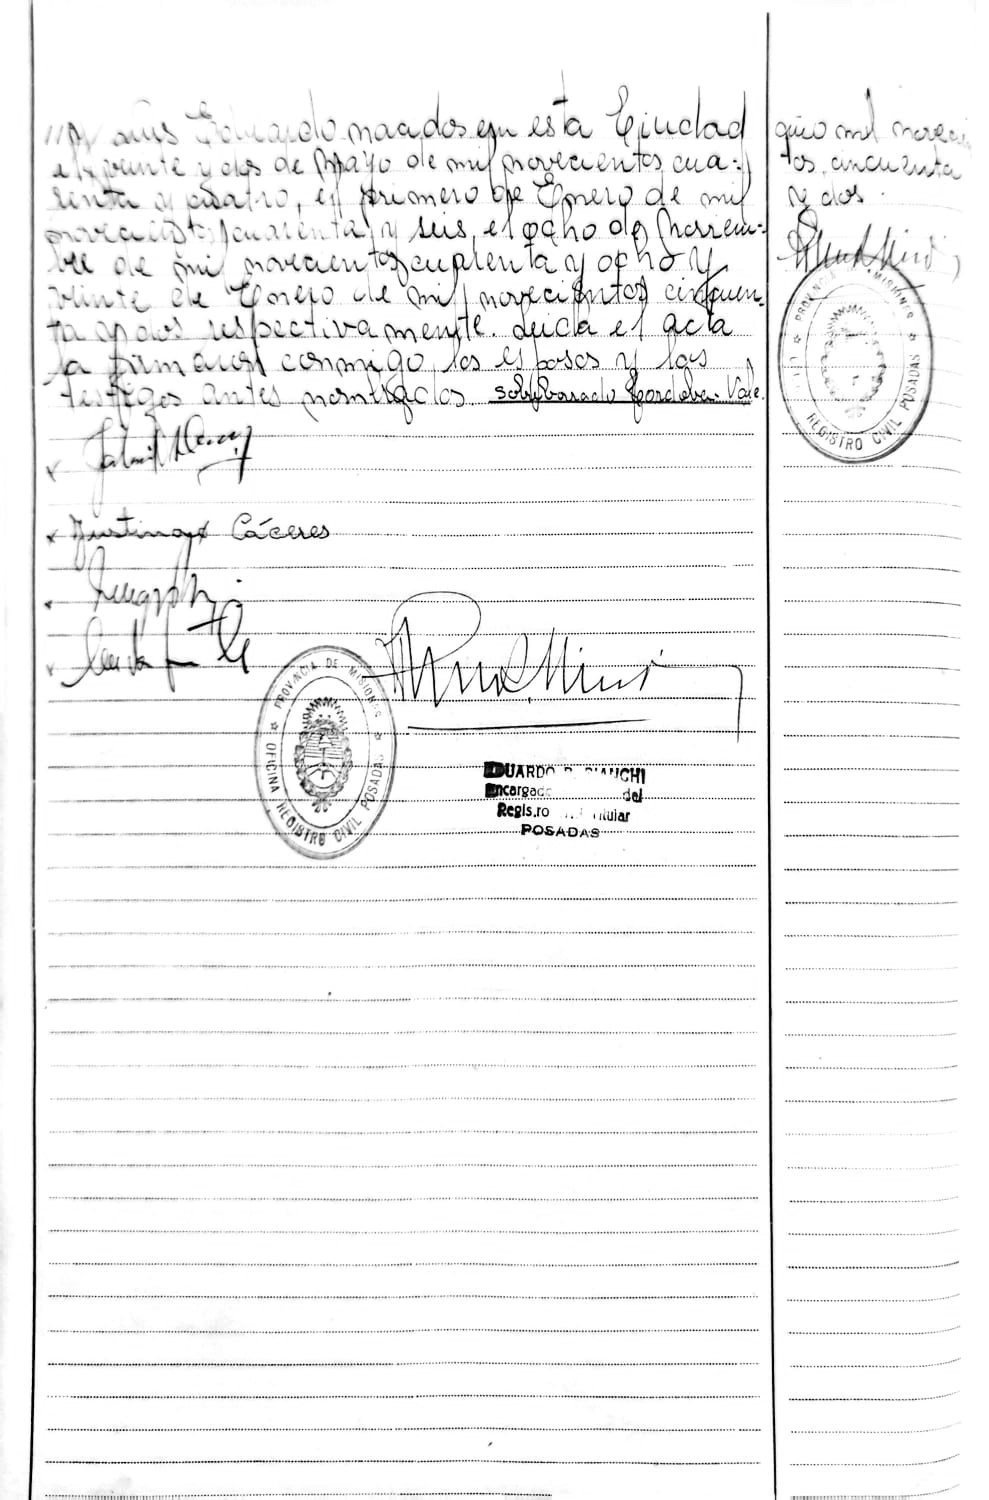 y Eduardo nacidos en esta Ciudad
el veinte y dos de Mayo de mil novecientos cua-
renta y cuatro, el primero de Enero de mil
novecientos cuarenta y seis, el ocho de Noviem-
bre de mil novecientos cuarenta y ocho y
veinte de Enero de mil novecientos cincuen-
ta y dos respectivamente. Leida el acta
la firmaron conmigo los esposos y los
testigos antes nombrados sobrborrado Cordoba. Vale.
x
x Justina Cáceres
x
x
PROVINCIA DE MISIONES
OFICINA REGISTRO CIVIL POSADAS
EDUARDO BIANCHI
Encargado del
Regis.ro
POSADAS
mil noveci
tos cincuenta
y dos
PROVINCIA MISIONES
REGISTRO CIVIL POSADAS